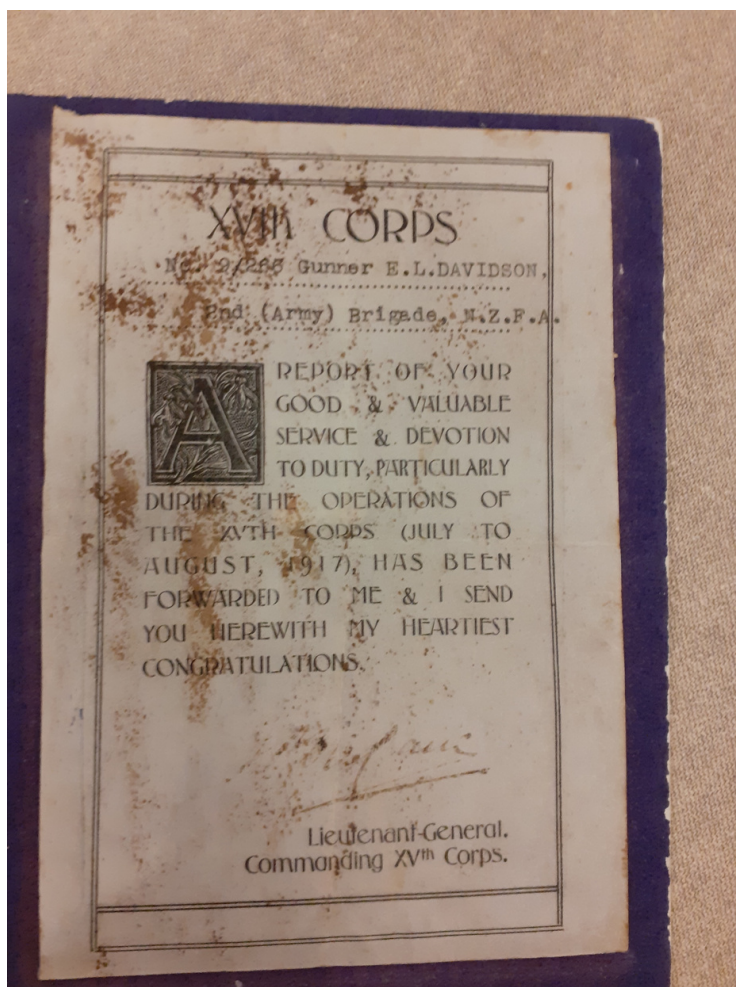 XVth CORPS
No. 2/266 Gunner E.L.DAVIDSON,
2nd (Army) Brigade, N.Z.F.A.
A REPORT OF YOUR
GOOD & VALUABLE
SERVICE & DEVOTION
TO DUTY, PARTICULARLY
DURING THE OPERATIONS OF
THE XVTH CORPS (JULY TO
AUGUST, 1917), HAS BEEN
FORWARDED TO ME & I SEND
YOU HEREWITH MY HEARTIEST
CONGRATULATIONS.
Lieutenant-General.
Commanding XVth Corps.